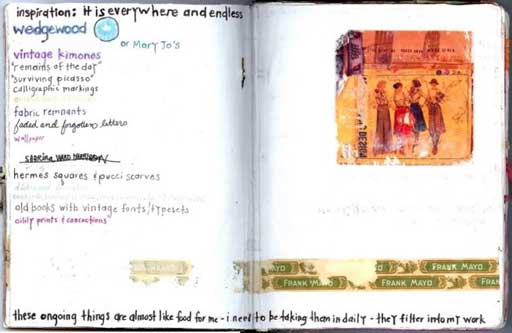 inspiration: it is everywhere and endless
wedgewood
or Mary Jo's
vintage kimonos
"remains of the day"
"surviving picasso"
calligraphic markings
fabric remnants
faded and forgotten letters
wallpaper
hermes squares & pucci scarves
old books with vintage fonts/typesets
oilily prints & concoctions
FRANK MAYO
FRANK MAYO
FRANK MAYO
FRANK MAYO
FRANK MAYO
these ongoing things are almost like food for me - i need to be taking them in daily - they filter into my work